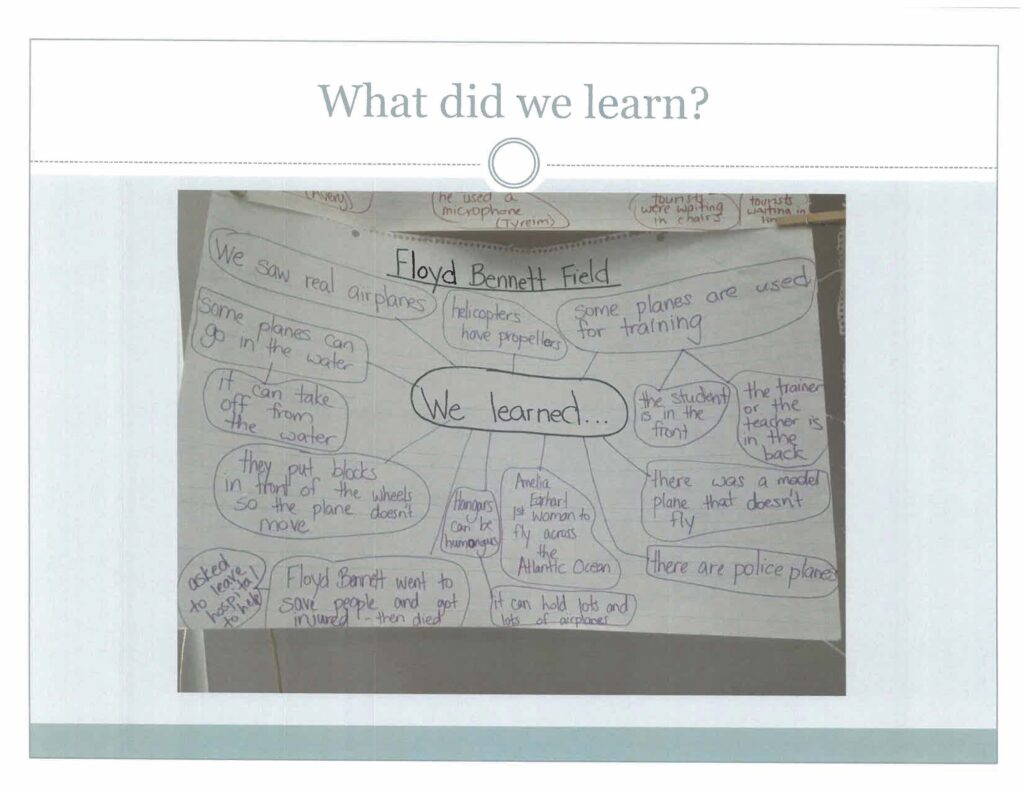 What did we learn?
(Avery)
he used a
microphone
(Tyreim)
tourists
were waiting
in chairs
tourists
waiting in
Floyd Bennett Field
We saw real airplanes
helicopters
have propellers
some planes are used
for training
Some planes can
go in the water
it can take
off from
the water
We learned...
the student
is in the
front
the trainer
or the
teacher is
in the
back
they put blocks
in front of the wheels
so the plane doesn't
move
Hangars
can be
humongus
Amelia
Earhart
1st woman to
fly across
the
Atlantic Ocean
there was a model
plane that doesn't
fly
there are police planes
asked
to leave
hospital
to help
Floyd Bennett went to
save people and got
injured - then died
it can hold lots and
lots of airplanes